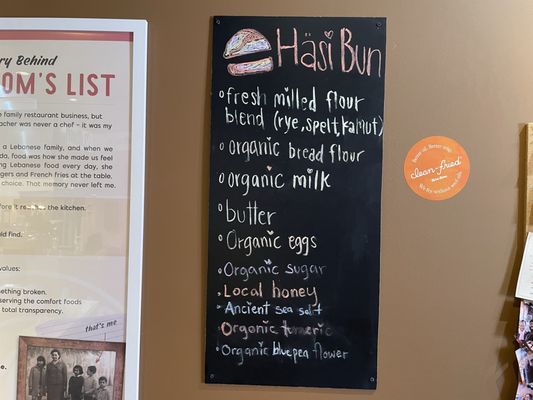 ry Behind
OM'S LIST
e family restaurant business, but
acher was never a chef - it was my
a Lebanese family, and when we
da, food was how she made us feel
ng Lebanese food every day, she
gers and French fries at the table.
choice. That memory never left me.
fore it re the kitchen.
uld find.
values:
mething broken.
serving the comfort foods
total transparency.
that's me
Häsi Bun
fresh milled flour
blend (rye, spelt, kamut)
organic bread flour
organic milk
butter
Organic eggs
Organic sugar
Local honey
Ancient sea salt
Organic tumeric
Organic blue pea flower
Better oil. Better crisp.
clean-fried
We fry without